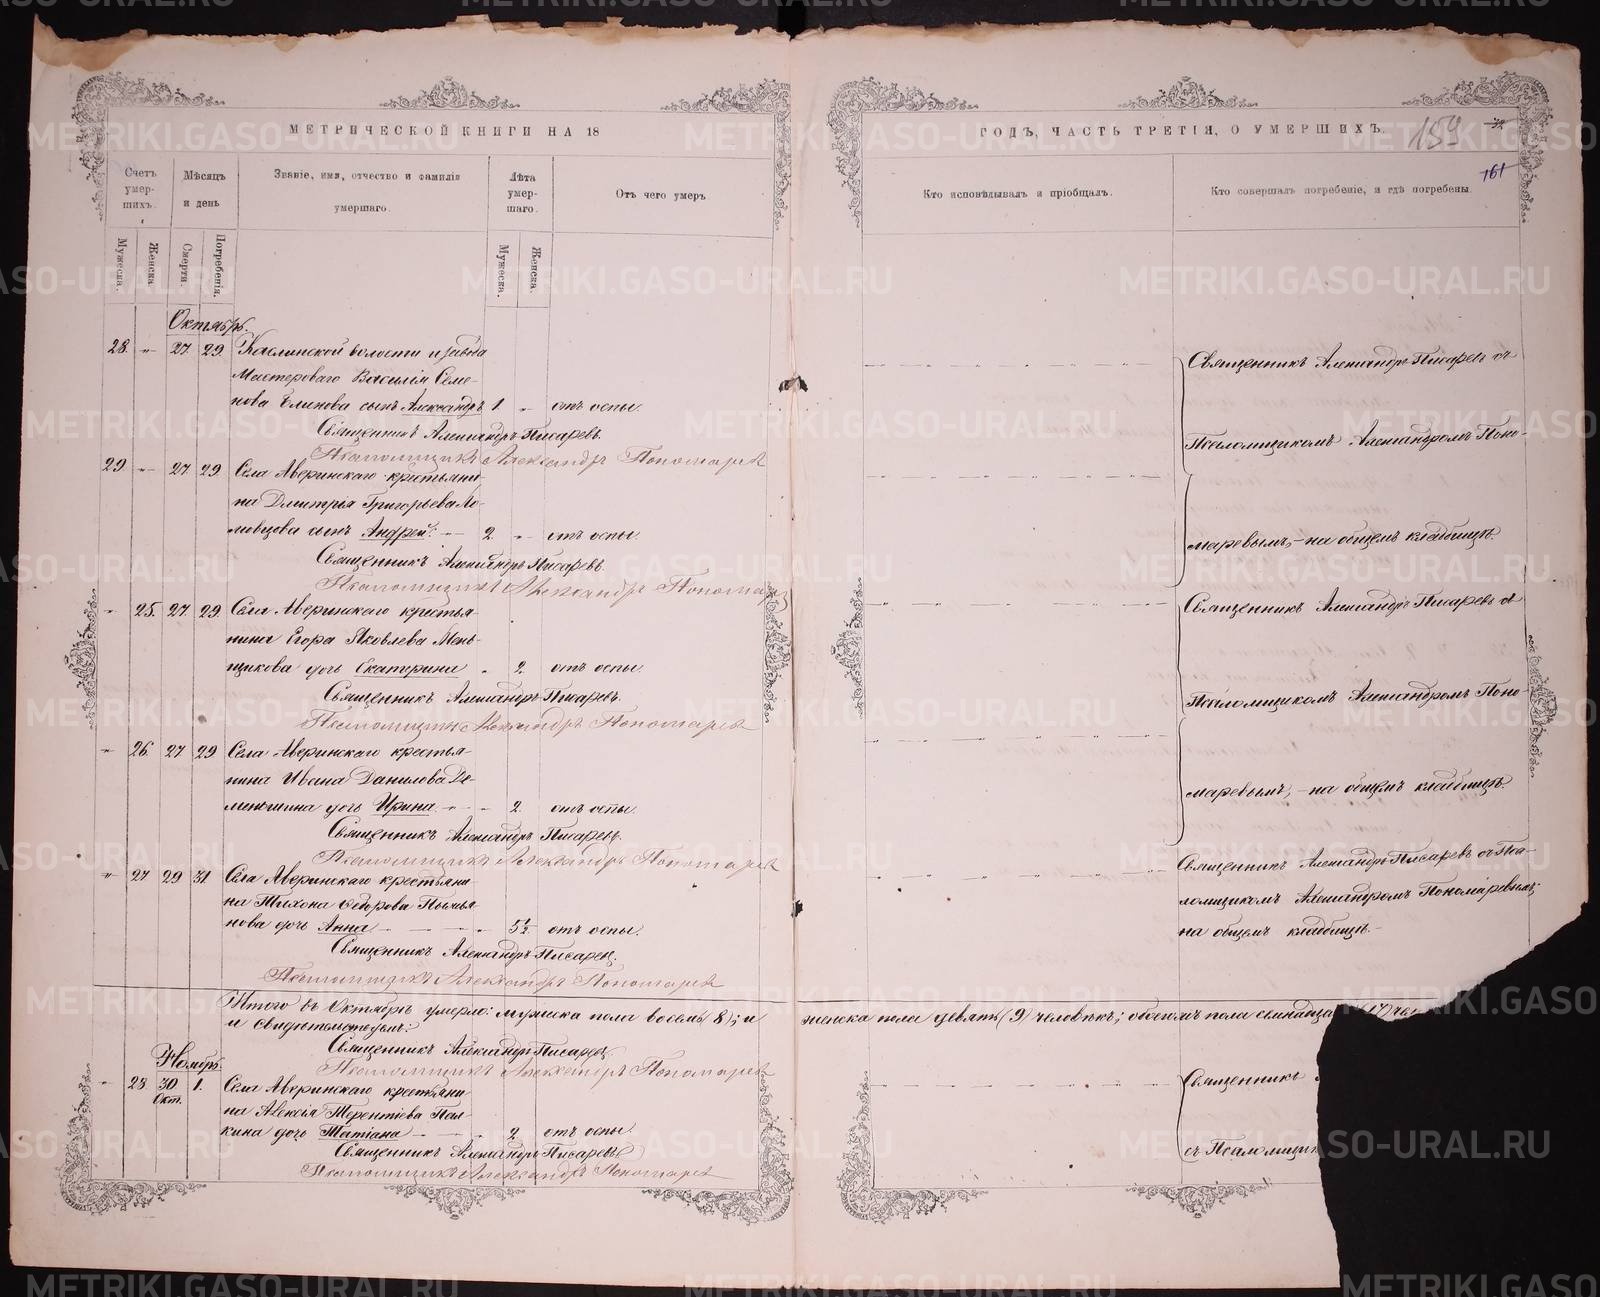 МЕТРИЧЕСКОЙ КНИГИ НА 18
ГОДЪ, ЧАСТЬ ТРЕТІЯ, О УМЕРШИХЪ.
159
161
Счетъ умер-шихъ.
Мѣсяцъ и день
Званіе, имя, отчество и фамилія умершаго.
Лѣта умер-шаго.
Отъ чего умеръ
Кто исповѣдывалъ и пріобщалъ.
Кто совершалъ погребеніе, и гдѣ погребены.
Мужеска.
Женска.
Смерти.
Погребенія.
Мужеска.
Женска.
Октябрь.
28. " 27 29. Каслинской волости и завода
Мастероваго Василія Семе-
нова Блинова сынъ Александръ 1. " отъ оспы.
Священникъ Александръ Писаревъ.
Псаломщикъ Александръ Пономаревъ
29. " 27 29. Села Аверинскаго крестьяни-
на Дмитрія Григорьева Ло-
мовцова сынъ Андрей. 2. " отъ оспы.
Священникъ Александръ Писаревъ.
Псаломщикъ Александръ Пономарев
" 25. 27 29. Села Аверинскаго крестья-
нина Егора Яковлева Мень-
щикова дочь Екатерина " 2. отъ оспы.
Священникъ Александръ Писаревъ.
Псаломщикъ Александръ Пономаревъ
" 26. 27 29 Села Аверинскаго крестья-
нина Ивана Данилова Де-
меншина дочь Ирина. 2. отъ оспы.
Священникъ Александръ Писаревъ.
Псаломщикъ Александръ Пономаревъ
" 27 29 31. Села Аверинскаго крестьяни-
на Тихона Ѳедорова
нова дочь Анна 5½. отъ оспы.
Священникъ Александръ Писаревъ.
Псаломщикъ Александръ Пономаревъ
Священникъ Александръ Писаревъ съ
Псаломщикомъ Александромъ Поно-
маревымъ, на общемъ кладбищѣ.
Священникъ Александръ Писаревъ съ
Псаломщикомъ Александромъ Поно-
маревымъ, на общемъ кладбищѣ.
Священникъ Александръ Писаревъ съ Пса-
ломщикомъ Александромъ Пономаревымъ,
на общемъ кладбищѣ.
Итого въ Октябрѣ умерло: мужеска пола восемь (8); и женска пола девять (9) человѣкъ; обоего пола семнадца (17) че
и свидѣтельствуемъ:
Священникъ Александръ Писаревъ.
Псаломщикъ Александръ Пономаревъ
Ноябрь.
" 28 30 Окт. 1. Села Аверинскаго крестьяни-
на Алексія Терентіева Пал-
кина дочь Татіана 2 отъ оспы.
Священникъ Александръ Писаревъ
Псаломщикъ Александръ Пономаревъ
Священникъ
съ Псаломщик
METRIKI.GASO-URAL.RU